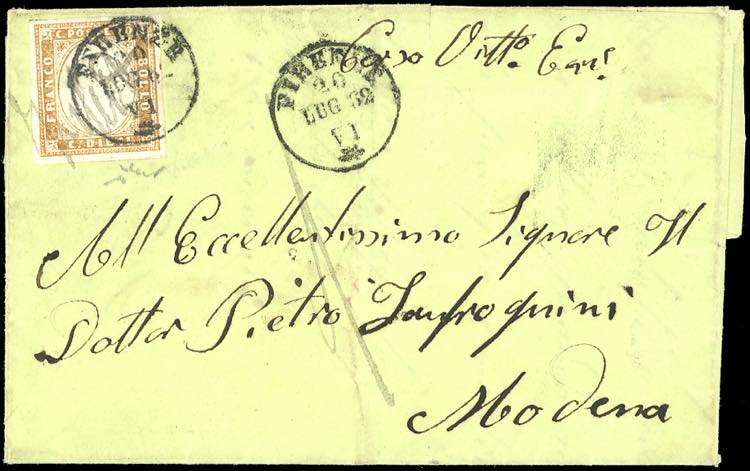 FRANCO
C. POSTE
BOLLO
FIRENZE
LUG
FIRENZE
26
LUG 62
Corso Vitto. Em.
All Eccellentissimo Signore Il
Dottor Pietro
Modena